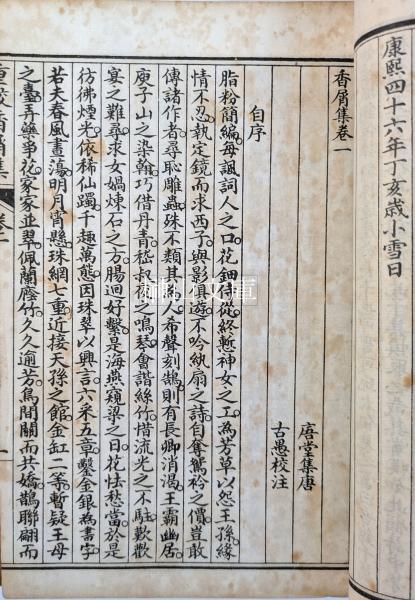 康熙四十六年丁亥歲小雪日
香屑集卷一
唐堂集唐
古愚校注
自序
脂粉簡編每諷詞人之口花鈿侍從終慙神女之工為芳草以怨王孫緣
情不忍執定鏡而求西子與影俱遊不吟紈扇之詩自奪鴛衾之價豈敢
傳諸作者尋恥雕蟲殊不類其為人希聲刻鵠則有長卿消渴王霸幽居
庾子山之染翰巧借丹青嵇叔夜之鳴琴會諧絲竹惜流光之不駐歎歡
宴之難尋求女媧煉石之方腸迴好繫是海燕窺梁之日花怯愁當於是
彷彿煙光依稀仙躅千趣萬態因珠翠以興言六采五章鑿金銀為書字
若夫春風書蕩明月宵懸珠網七重近接天孫之館金缸二等暫疑王母
之臺弄藥爭花家家並翠佩蘭廕竹久久逾芳鳥間關而共嬌鵲聯翩而
重校香屑集
卷一
一